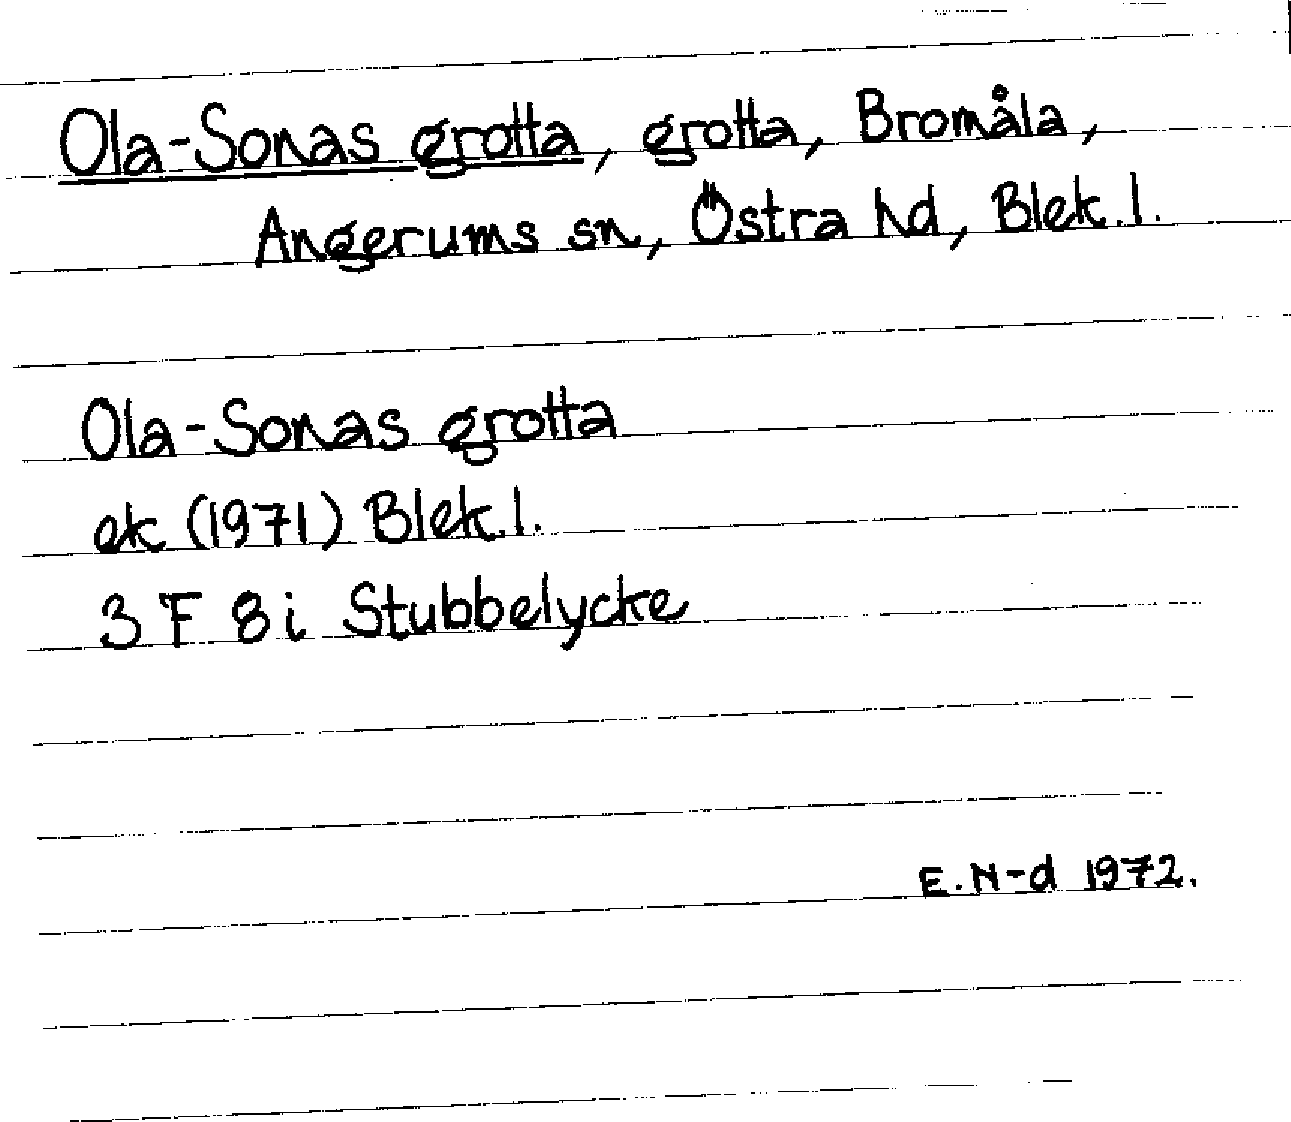 Ola-Sonas grotta, grotta, Bromåla,
Angerums sn, Östra hd, Blek. l.
Ola-Sonas grotta
ek (1971) Blek. l.
3 F 8 i Stubbelycke
E. N-d 1972.